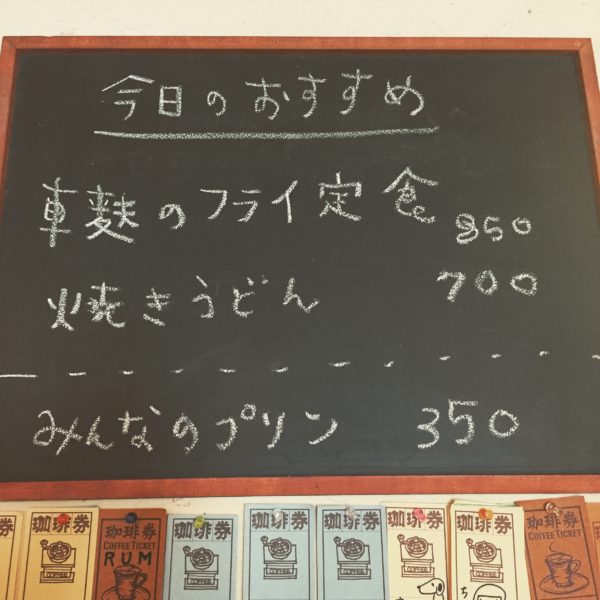 今日のおすすめ
車麩のフライ定食 850
焼きうどん 700
みんなのプリン 350
珈琲券
珈琲券
COFFEE TICKET
RUM
珈琲券
COFFEE
珈琲券
COFFEE
珈琲券
COFFEE
珈琲券
COFFEE
珈琲券
COFFEE
ち
珈琲券
COFFEE TICKET